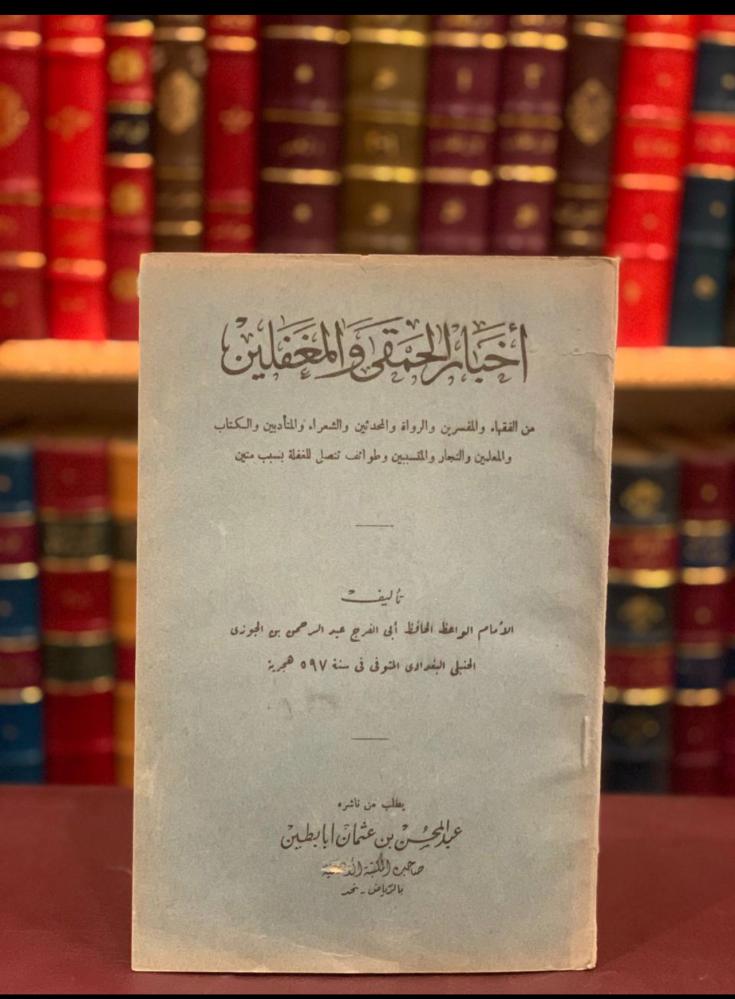 أخبار الحمقى والمغفلين
من الفقهاء والمفسرين والرواة والمحدثين والشعراء والمتأدبين والكتاب
والمعلمين والتجار والمتسببين وطوائف تتصل للغفلة بسبب متين
تأليف
الأمام الواعظ الحافظ أبى الفرج عبد الرحمن بن الجوزى
الحنبلى البغدادى المتوفى فى سنة ٥٩٧ هجرية
يطلب من ناشره
عبد المحسن بن عثمان ابابطين
صاحب المكتبة
بالرياض - نجد